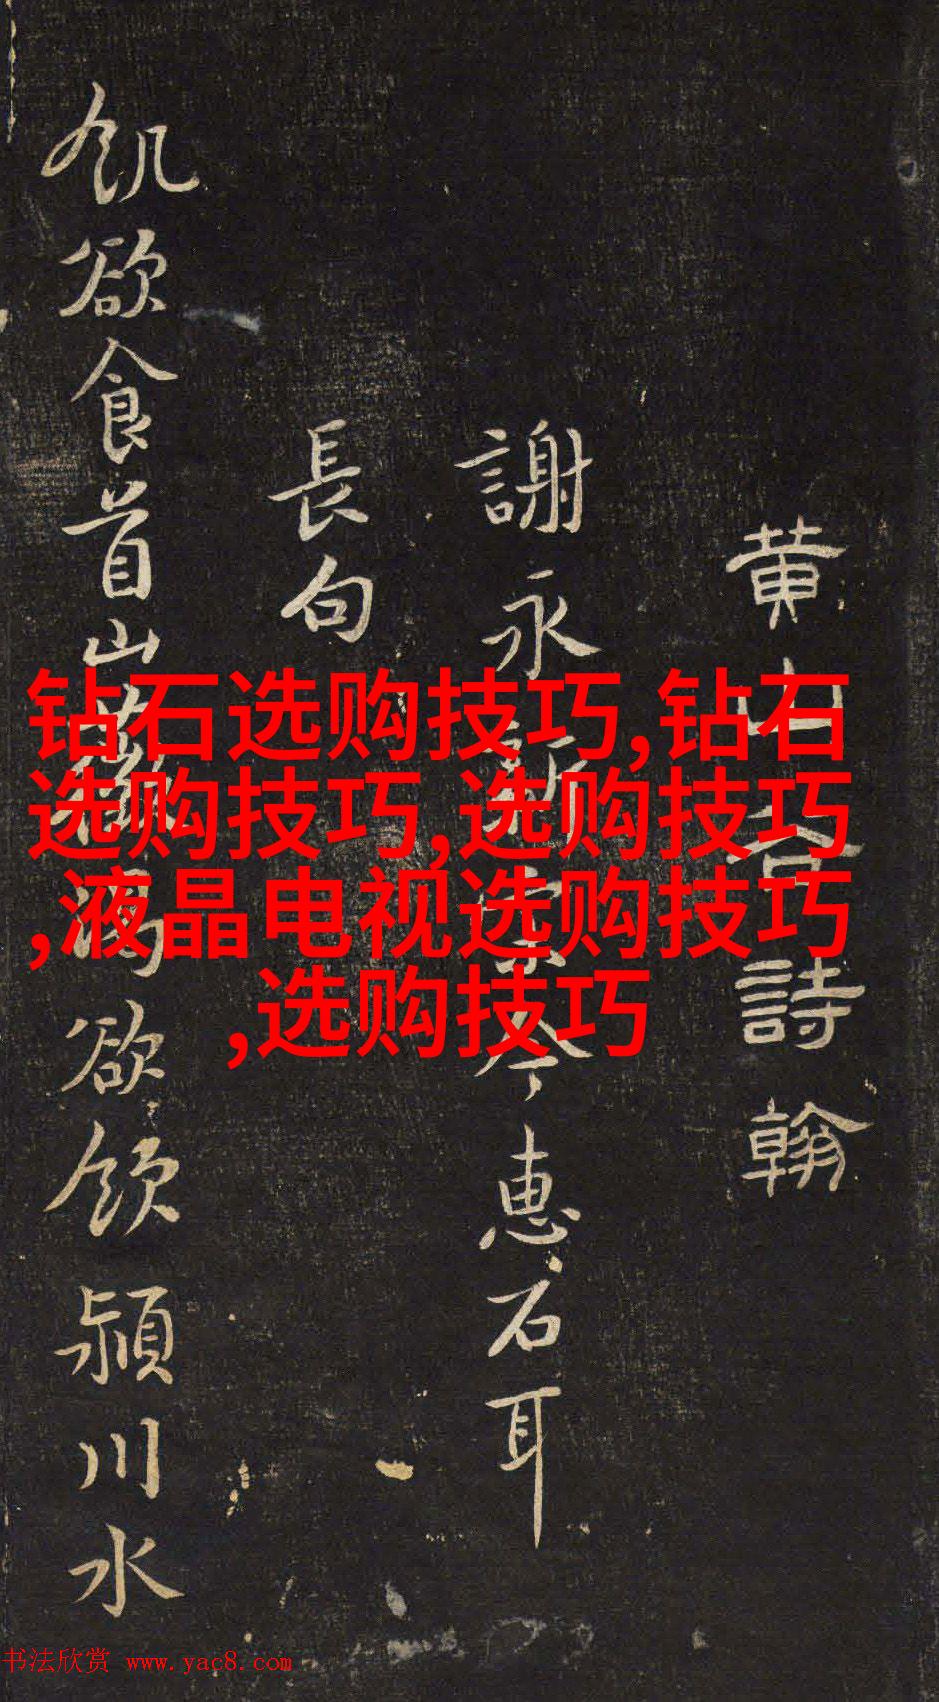 黄山谷詩翰
謝永新宗令惠石耳
長句
飢欲食首山薇渴欲飲潁川水
钻石选购技巧,钻石
选购技巧,选购技巧
,液晶电视选购技巧
,选购技巧
书法欣赏 www.yac8.com